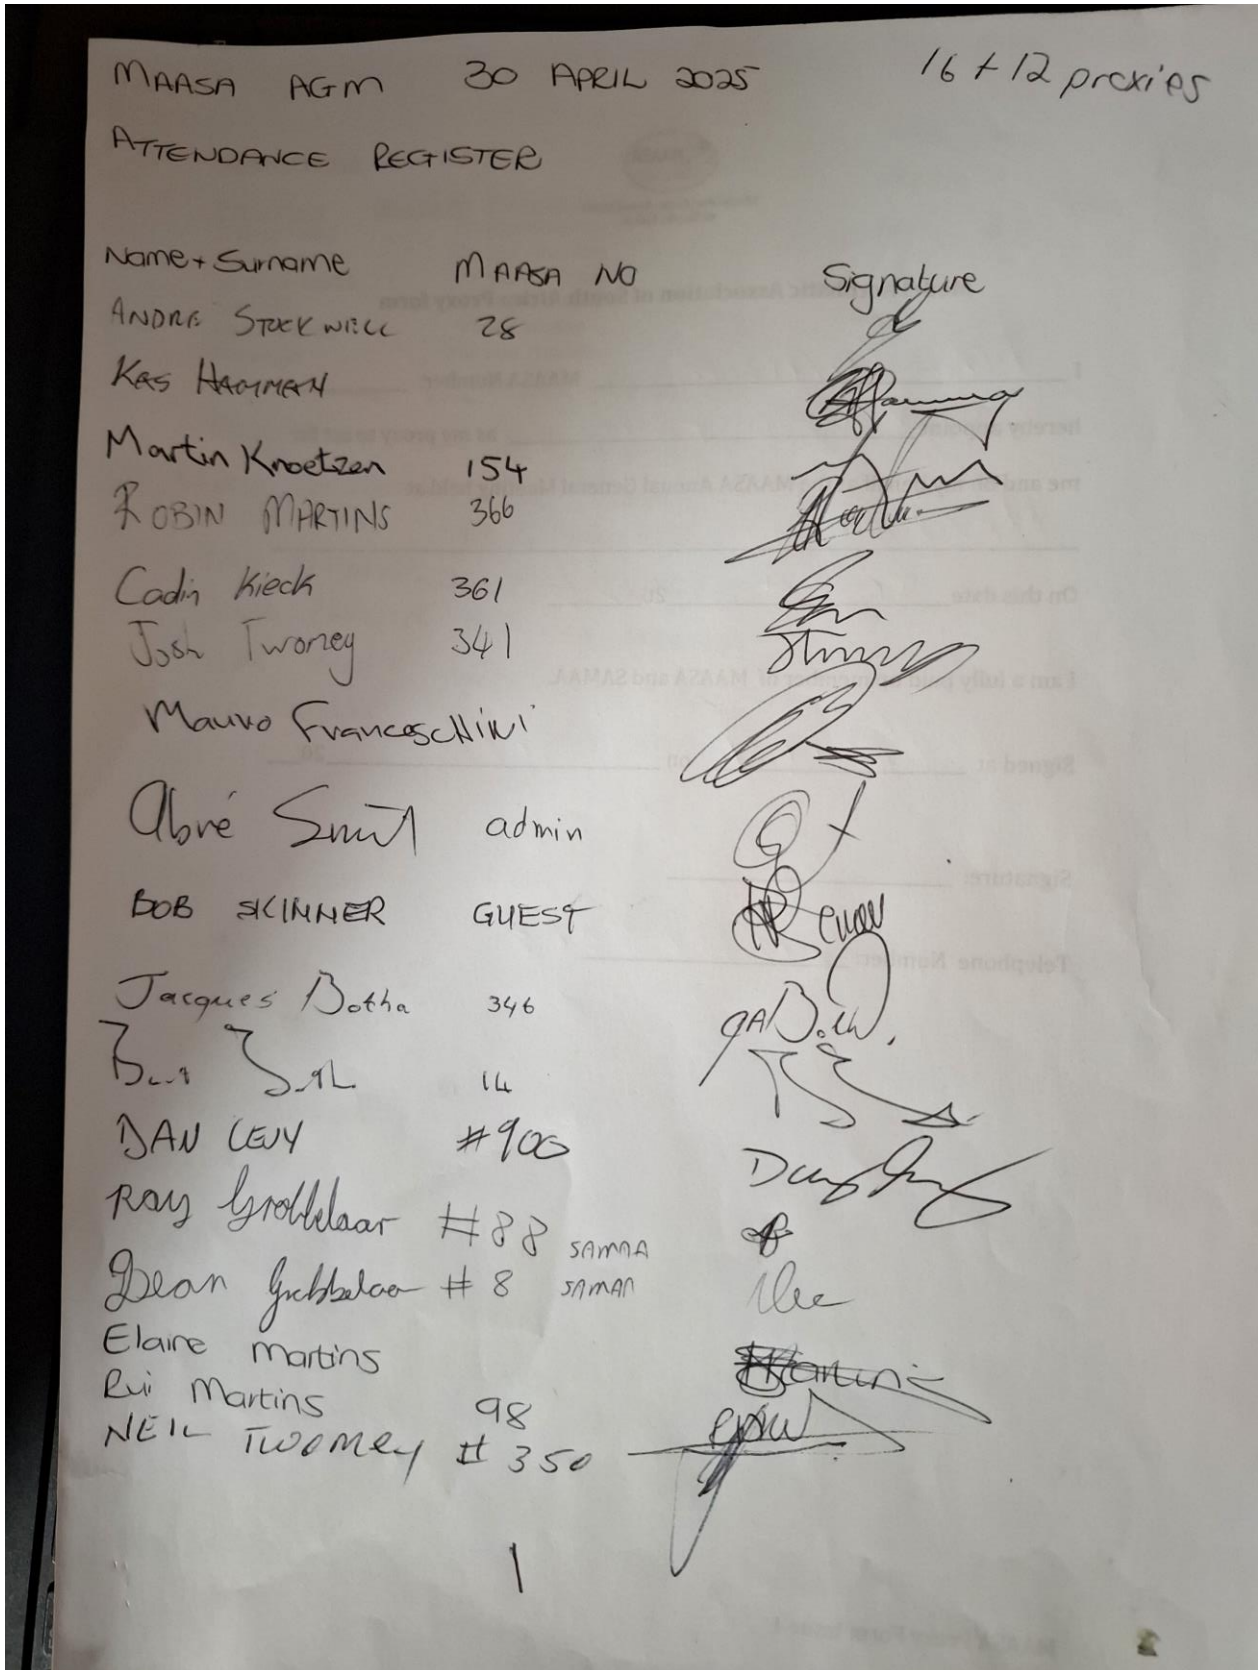 MAASA AGM 30 APRIL 2025 16 + 12 proxies
ATTENDANCE REGISTER
Name + Surname MAASA NO Signature
ANDRE STOCKWELL 28
KAS HAMMAN
Martin Knoetzen 154
ROBIN MARTINS 366
Cadin Kieck 361
Josh Twomey 341
Mauro FrancescHini
Abré Smit admin
BOB SKINNER GUEST
Jacques Botha 346
14
DAN LEVY #900
Ray Grobbelaar #88 SAMAA
Dean Grobbelaar #8 SAMAA
Elaine Martins
Rui Martins 98
NEIL TWOMEY #350
1